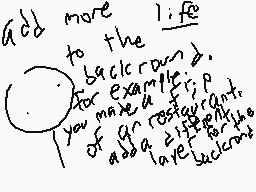 add more life
to the
backround.
for example:
you make a flip
of an restaurant.
add a diffent
layer for the
backrond